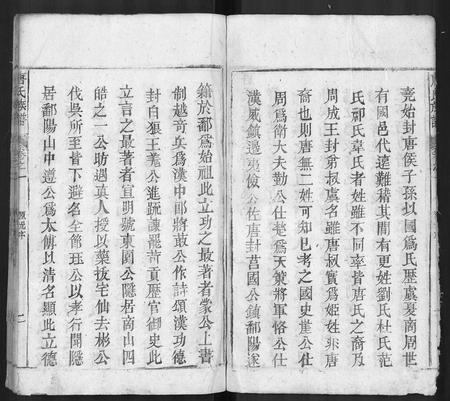 堯始封唐侯子孫以國爲氏歷虞夏商周世
有國邑代遠難稽其間有更姓劉氏杜氏范
氏祁氏韋氏者姓雖不同率皆唐氏之裔乃
周成王封弟叔虞名雖唐叔實爲姬姓非唐
裔也則唐無二姓可知已考之國史崖公仕
周爲衛大夫勤公仕楚爲天策將軍恪公仕
漢威鎮邊夷儉公佐唐封莒國公鎮鄱陽遂
籍於鄱爲始祖此立功之最著者蒙公上書
制越奇兵爲漢中郎將敢公作詩頌漢功德
封白狼王羌公進疏諫罷苛貢歷官御史此
立言之最著者宣明號東園公隱居南山四
皓之一公昉遇真人授以藥拔宅仙去彬公
伐吳所至皆下避名全節珏公以孝行聞隱
居鄱陽山中遵公爲太傅以清名顯此立德
唐氏族譜
卷之一
二